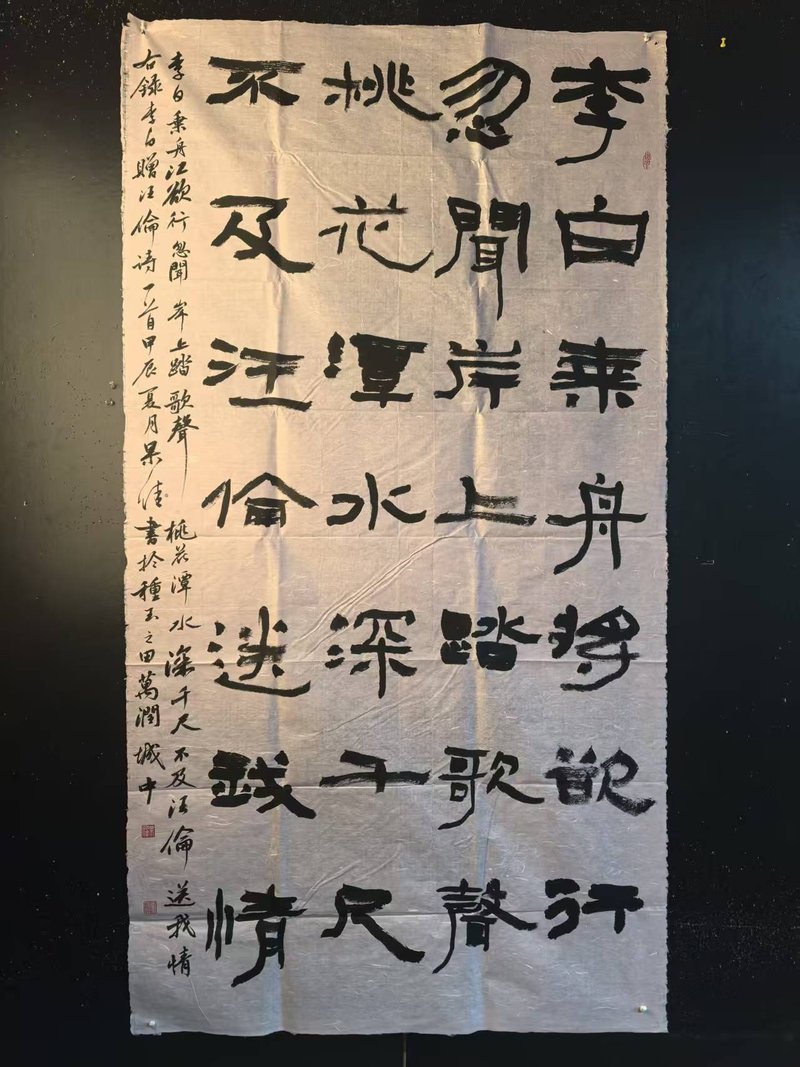 李白乘舟将欲行
忽聞岸上踏歌聲
桃花潭水深千尺
不及汪倫送我情
李白乘舟江欲行忽聞岸上踏歌聲桃花潭水深千尺不及汪倫送我情
右錄李白贈汪倫诗一首甲辰夏月書於種玉之田萬潤城中